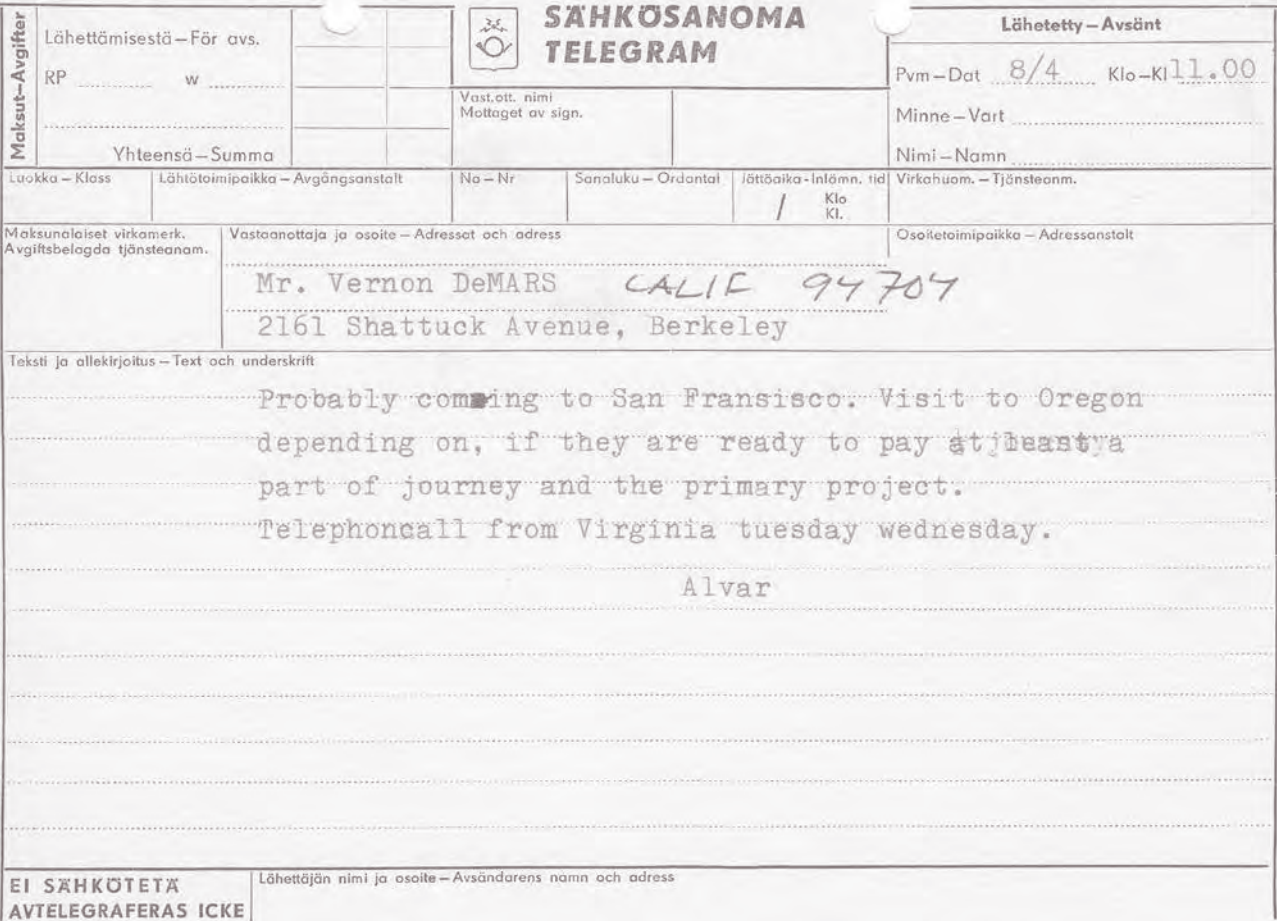 SÄHKÖSANOMA
TELEGRAM
Maksut–Avgifter
Lähettämisestä–För avs.
RP w
Yhteensä–Summa
Vast.ott. nimi
Mottaget av sign.
Lähetetty–Avsänt
Pvm–Dat 8/4 Klo–Kl 11.00
Minne–Vart
Nimi–Namn
Luokka–Klass Lähtötoimipaikka–Avgångsanstalt No–Nr Sanaluku–Ordantal Jättöaika-Inlämn. tid Virkahuom.–Tjänsteanm.
/ Klo
Kl.
Maksunalaiset virkamerk.
Avgiftsbelagda tjänsteanam.
Vastaanottaja ja osoite–Adressat och adress
Osoitetoimipaikka–Adressanstalt
Mr. Vernon DeMARS CALIF 94704
2161 Shattuck Avenue, Berkeley
Teksti ja allekirjoitus–Text och underskrift
Probably coming to San Fransisco. Visit to Oregon
depending on, if they are ready to pay a
part of journey and the primary project.
Telephoncall from Virginia tuesday wednesday.
Alvar
EI SÄHKÖTETÄ
AVTELEGRAFERAS ICKE
Lähettäjän nimi ja osoite–Avsändarens namn och adress